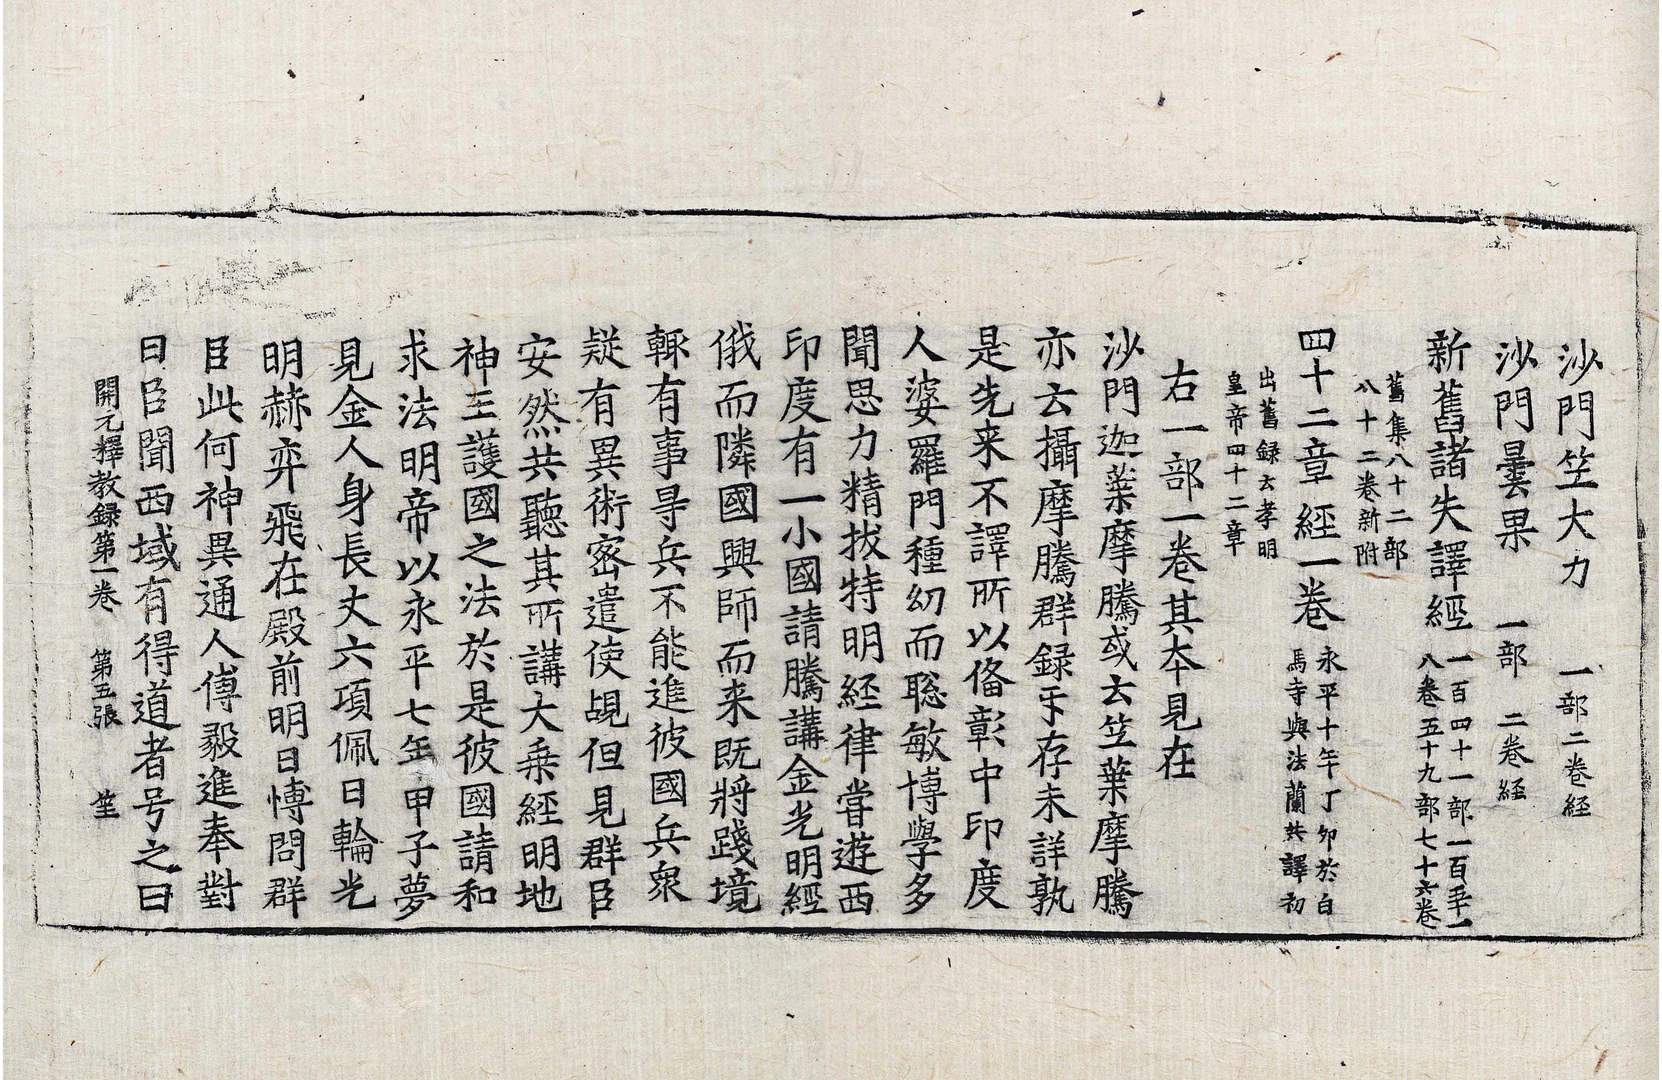 沙門笁大力　一部二卷経
沙門曇果　一部　二卷経
新舊諸失譯經一百四十一部一百五十一
八卷五十九部七十六卷
舊集八十二部
八十二卷新附
四十二章經一卷永平十年丁卯於白
馬寺與法蘭共譯初
出舊録云孝明
皇帝四十二章
右一部一卷其本見在
沙門迦葉摩騰或云笁葉摩騰
亦云攝摩騰群録互存未詳孰
是先来不譯所以備彰中印度
人婆羅門種幼而聡敏博學多
聞思力精拔特明経律甞遊西
印度有一小國請騰講金光明經
俄而隣國興師而来既將踐境
輙有事㝵兵不能進彼國兵衆
疑有異術密遣使覘但見群臣
安然共聽其所講大乗經明地
神王護國之法於是彼國請和
求法明帝以永平七年甲子夢
見金人身長丈六項佩日輪光
明赫弈飛在殿前明日博問群
臣此何神異通人傅毅進奉對
曰臣聞西域有得道者号之曰
開元釋教録第一卷　第五張　笙